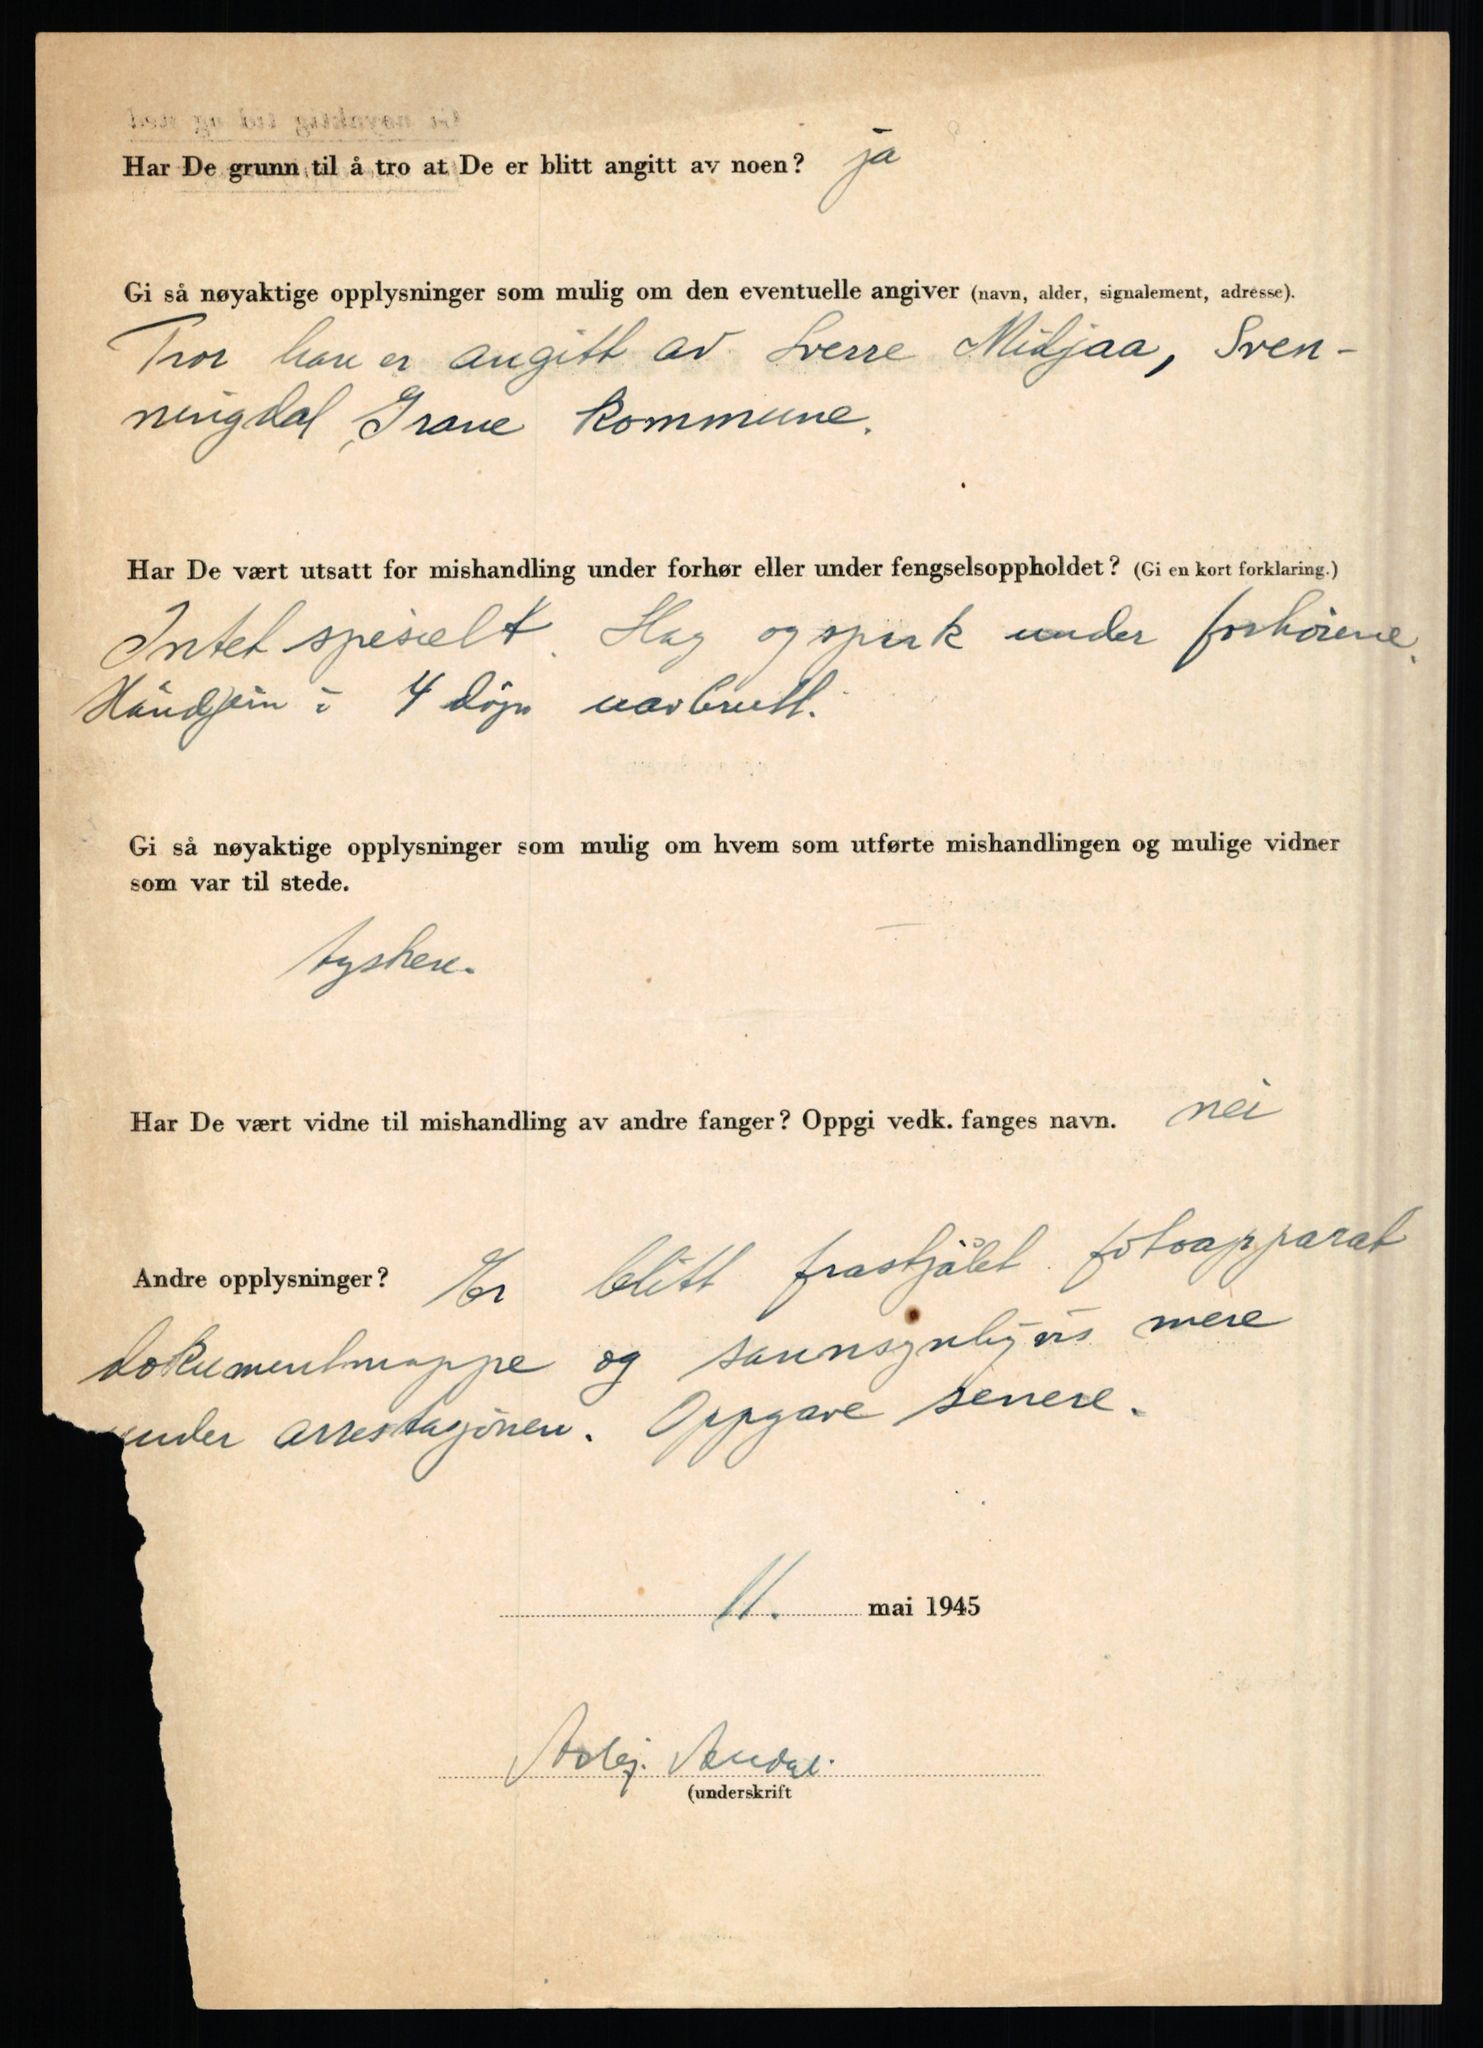 Har De grunn til å tro at De er blitt angitt av noen? ja
Gi så nøyaktige opplysninger som mulig om den eventuelle angiver (navn, alder, signalement, adresse).
Tror han er angitt av Sverre Midjaa, Sven-
ningdal, Grane kommune.
Har De vært utsatt for mishandling under forhør eller under fengselsoppholdet? (Gi en kort forklaring.)
Intet spesielt. Slag og spark under forhörene.
Håndjern i 4 døgn uavbrutt.
Gi så nøyaktige opplysninger som mulig om hvem som utførte mishandlingen og mulige vidner
som var til stede.
tyskere.
Har De vært vidne til mishandling av andre fanger? Oppgi vedk. fanges navn. nei
Andre opplysninger? Er blitt frastjålet fotoapparat
dokumentmappe og sannsynligvis mere
under arrestasjonen. Oppgave senere.
11. mai 1945
(underskrift